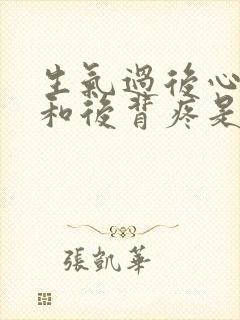 生氣過後心
和後背疼是
張凱華